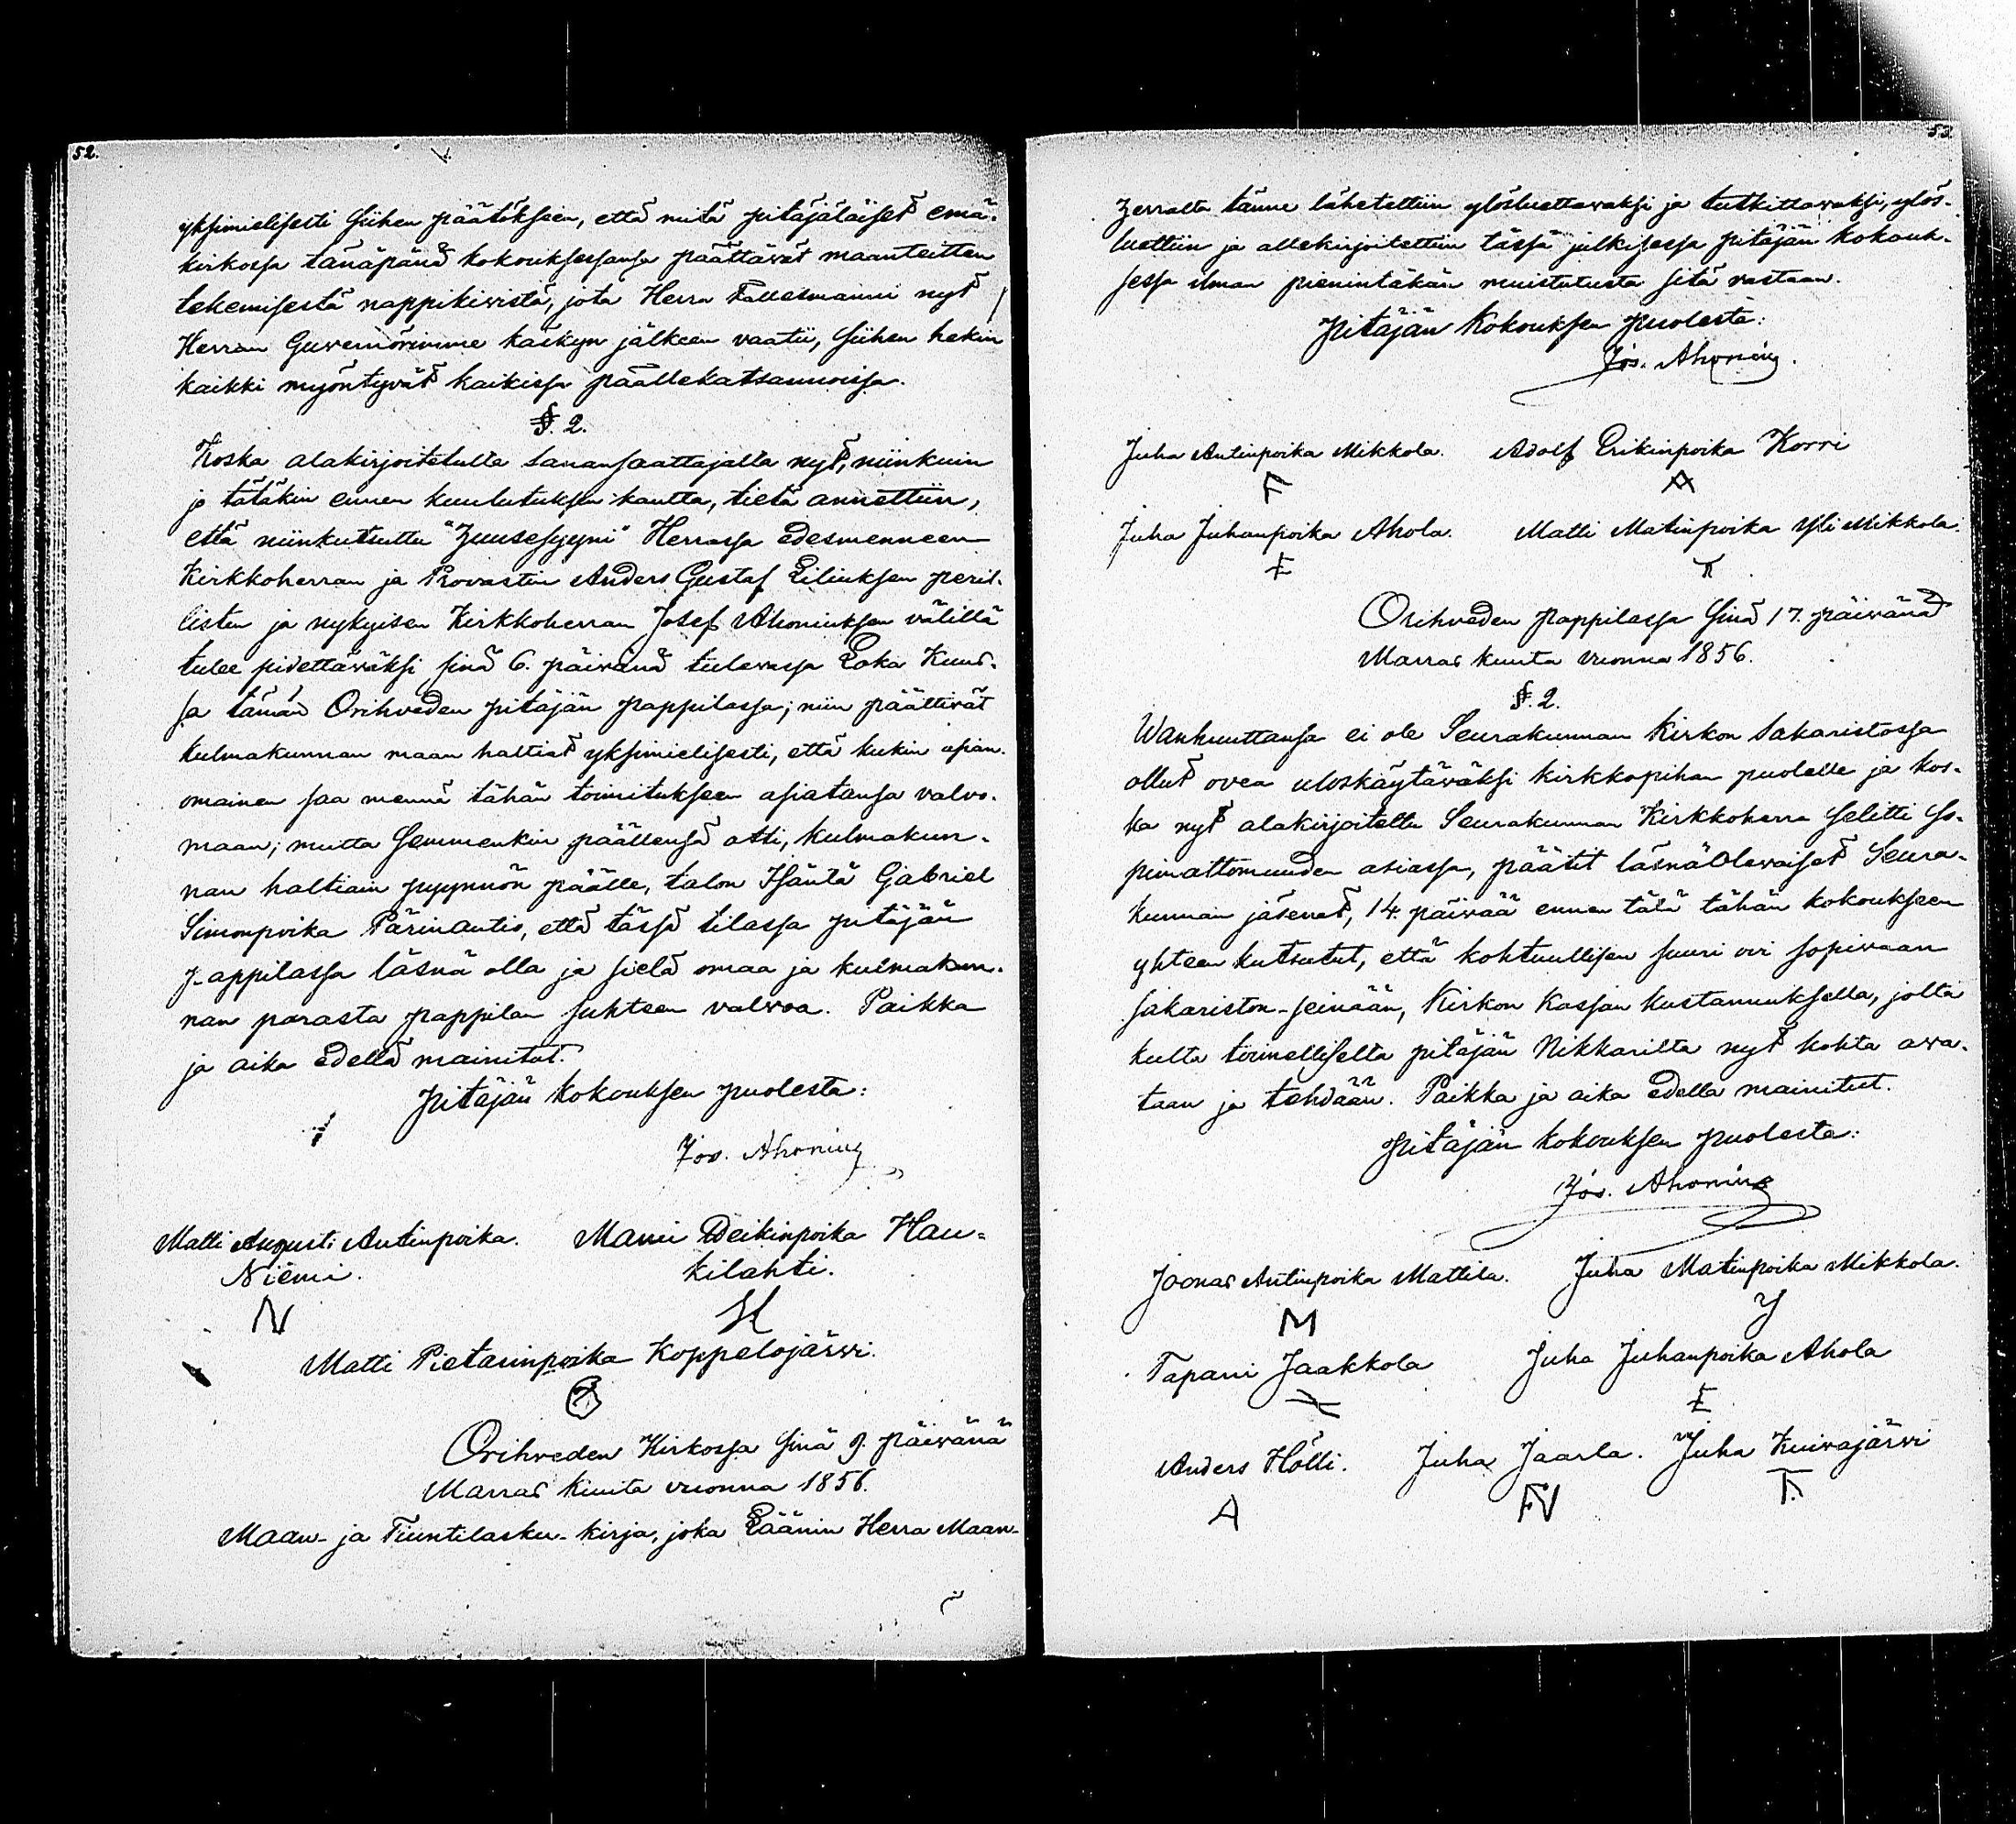 52.
yksimielisesti siihen päätökseen, että mitä pitäjäläiset emä-
kirkossa tänäpänä kokouksessansa päättävät maanteitten
tekemisestä nappikivistä, jota Herra Fallesmanni nyt
Herran Guvernörimme käskyn jälkeen vaatii, siihen hekin
kaikki myöntyvät kaikissa päällekatsannoissa.
§. 2.
Koska alakirjoitetulta sanansaattajalta nyt, niinkuin
jo tätäkin ennen kuulutuksen kautta, tietä annettiin,
että niinkutsuttu "Huusesyyni" Herrassa edesmenneen
Kirkkoherran ja Provastin Anders Gustaf Liliuksen peril-
listen ja nykyisen Kirkkoherran Josef Ahoniuksen välillä
tulee pidettäväksi sinä 6. päivänä tulevassa Loka Kuus-
sa tämän Orihveden pitäjän pappilassa; niin päättivät
kulmakunnan maan haltiat yksimielisesti, että kukin asian-
omainen saa mennä tähän toimitukseen asiatansa valvo-
maan; mutta semmenkin päällensä otti, kulmakun-
nan haltiain pyynnön päälle, talon Isäntä Gabriel
Simonpoika Pärinantio, että tässä tilassa pitäjän
pappilassa läsnä olla ja sielä omaa ja kulmakun-
nan parasta pappilan suhteen valvoa. Paikka
ja aika edellä mainitut.
Pitäjän kokouksen puolesta:
Jos. Ahonius
Matti Augusti Antinpoika. Manni Deikinpoika Hau-
Niemi. kilahti.
N H
Matti Pietarinpoika Koppelojärvi.
Orihveden Kirkossa sinä 9. päivänä
Marras kuuta vuonna 1856.
Maan- ja Tiuntilasku-kirja, joka Läänin Herra Maan-
53.
Herralta tänne lähetettiin ylösluettavaksi ja tutkittavaksi, ylös-
luettiin ja allekirjoitettiin tässä julkisessa pitäjän kokouk-
sessa ilman pienintäkän muistutusta sitä vastaan.
Pitäjän Kokouksen puolesta:
Jos. Ahonius.
Juha Antinpoika Mikkola. Adolf Erikinpoika Korri
F A
Juha Juhanpoika Ahola. Matti Matinpoika Yli Mikkola.
Orihveden pappilassa sinä 17. päivänä
Marras kuuta vuonna 1856.
§. 2.
Wanhuuttansa ei ole Seurakunnan Kirkon Sakaristossa
ollut ovea uloskäytäväksi kirkkopihan puolelle ja kos-
ka nyt alakirjoitettu Seurakunnan Kirkkoherra selitti so-
pimattomuuden asiassa, päätit läsnäolevaiset Seura-
kunnan jäsenet, 14 päivää ennen tätä tähän kokoukseen
yhteen kutsutut, että kohtuullisen suuri ovi sopivaan
sakariston-seinään, Kirkon Kassan kustannuksella, jolta
kulta toimelliselta pitäjän Nikkarilta nyt kohta ava-
taan ja tehdään. Paikka ja aika edella mainitut.
Pitäjän kokouksen puolesta:
Jos. Ahonius
Joonas Antinpoika Mattila. Juha Matinpoika Mikkola.
M Y
Tapani Jaakkola Juha Juhanpoika Ahola
Anders Hölli. Juha Jaarla. Juha Kuivajärvi
A FV T.